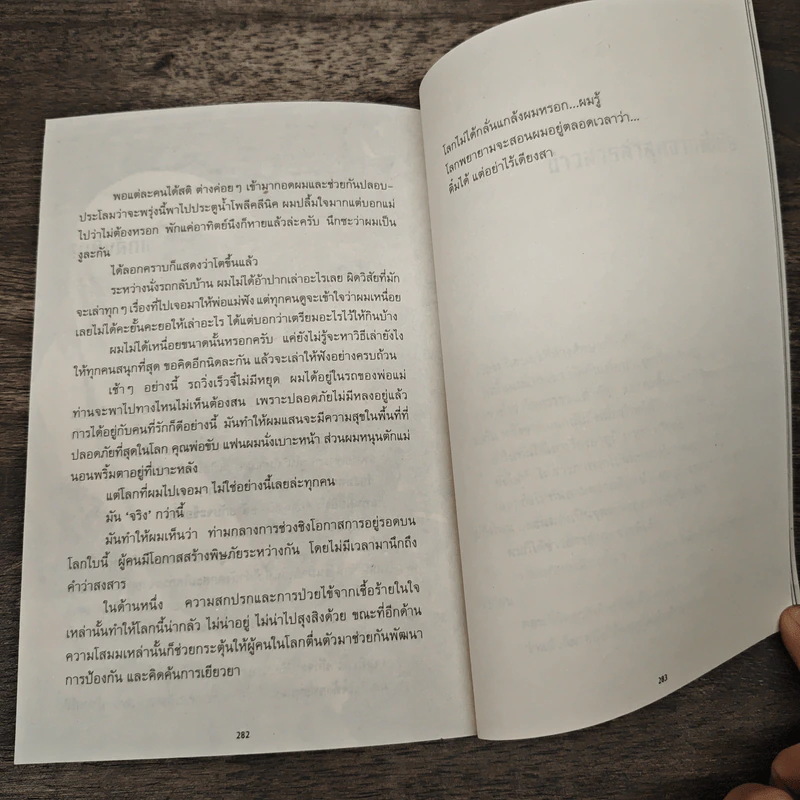 พอแต่ละคนได้สติ ต่างค่อยๆ เข้ามากอดผมและช่วยกันปลอบ-
ประโลมว่าจะพรุ่งนี้พาไปประตูน้ำโพลีคลีนิค ผมปลื้มใจมากแต่บอกแม่
ไปว่าไม่ต้องหรอก พักแค่อาทิตย์นึงก็หายแล้วล่ะครับ นึกซะว่าผมเป็น
งูละกัน
ได้ลอกคราบก็แสดงว่าโตขึ้นแล้ว
ระหว่างนั่งรถกลับบ้าน ผมไม่ได้อ้าปากเล่าอะไรเลย ผิดวิสัยที่มัก
จะเล่าทุกๆ เรื่องที่ไปเจอมาให้พ่อแม่ฟัง แต่ทุกคนดูจะเข้าใจว่าผมเหนื่อย
เลยไม่ได้คะยั้นคะยอให้เล่าอะไร ได้แต่บอกว่าเตรียมอะไรไว้ให้กินบ้าง
ผมไม่ได้เหนื่อยขนาดนั้นหรอกครับ แค่ยังไม่รู้จะหาวิธีเล่ายังไง
ให้ทุกคนสนุกที่สุด ขอคิดอีกนิดละกัน แล้วจะเล่าให้ฟังอย่างครบถ้วน
เช้าๆ อย่างนี้ รถวิ่งเร็วจี๋ไม่มีหยุด ผมได้อยู่ในรถของพ่อแม่
ท่านจะพาไปทางไหนไม่เห็นต้องสน เพราะปลอดภัยไม่มีหลงอยู่แล้ว
การได้อยู่กับคนที่รักก็ดีอย่างนี้ มันทำให้ผมแสนจะมีความสุขในพื้นที่ที่
ปลอดภัยที่สุดในโลก คุณพ่อขับ แฟนผมนั่งเบาะหน้า ส่วนผมหนุนตักแม่
นอนพริ้มตาอยู่ที่เบาะหลัง
แต่โลกที่ผมไปเจอมา ไม่ใช่อย่างนี้เลยล่ะทุกคน
มัน ‘จริง’ กว่านี้
มันทำให้ผมเห็นว่า ท่ามกลางการช่วงชิงโอกาสการอยู่รอดบน
โลกใบนี้ ผู้คนมีโอกาสสร้างพิษภัยระหว่างกัน โดยไม่มีเวลามานึกถึง
คำว่าสงสาร
ในด้านหนึ่ง ความสกปรกและการป่วยไข้จากเชื้อร้ายในใจ
เหล่านั้นทำให้โลกนี้น่ากลัว ไม่น่าอยู่ ไม่น่าไปสุงสิงด้วย ขณะที่อีกด้าน
ความโสมมเหล่านั้นก็ช่วยกระตุ้นให้ผู้คนในโลกตื่นตัวมาช่วยกันพัฒนา
การป้องกัน และคิดค้นการเยียวยา
282
โลกไม่ได้กลั่นแกล้งผมหรอก...ผมรู้
โลกพยายามจะสอนผมอยู่ตลอดเวลาว่า...
ดื่มได้ แต่อย่าไร้เดียงสา
283